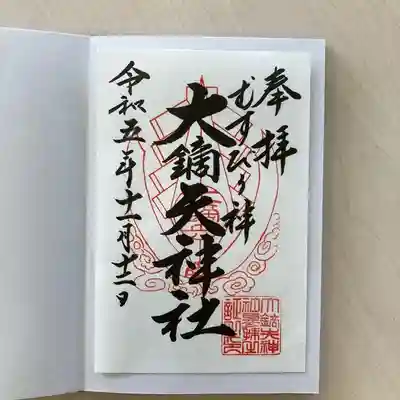 奉拝
むすひの神
大鏑矢神社
令和五年十一月十一日